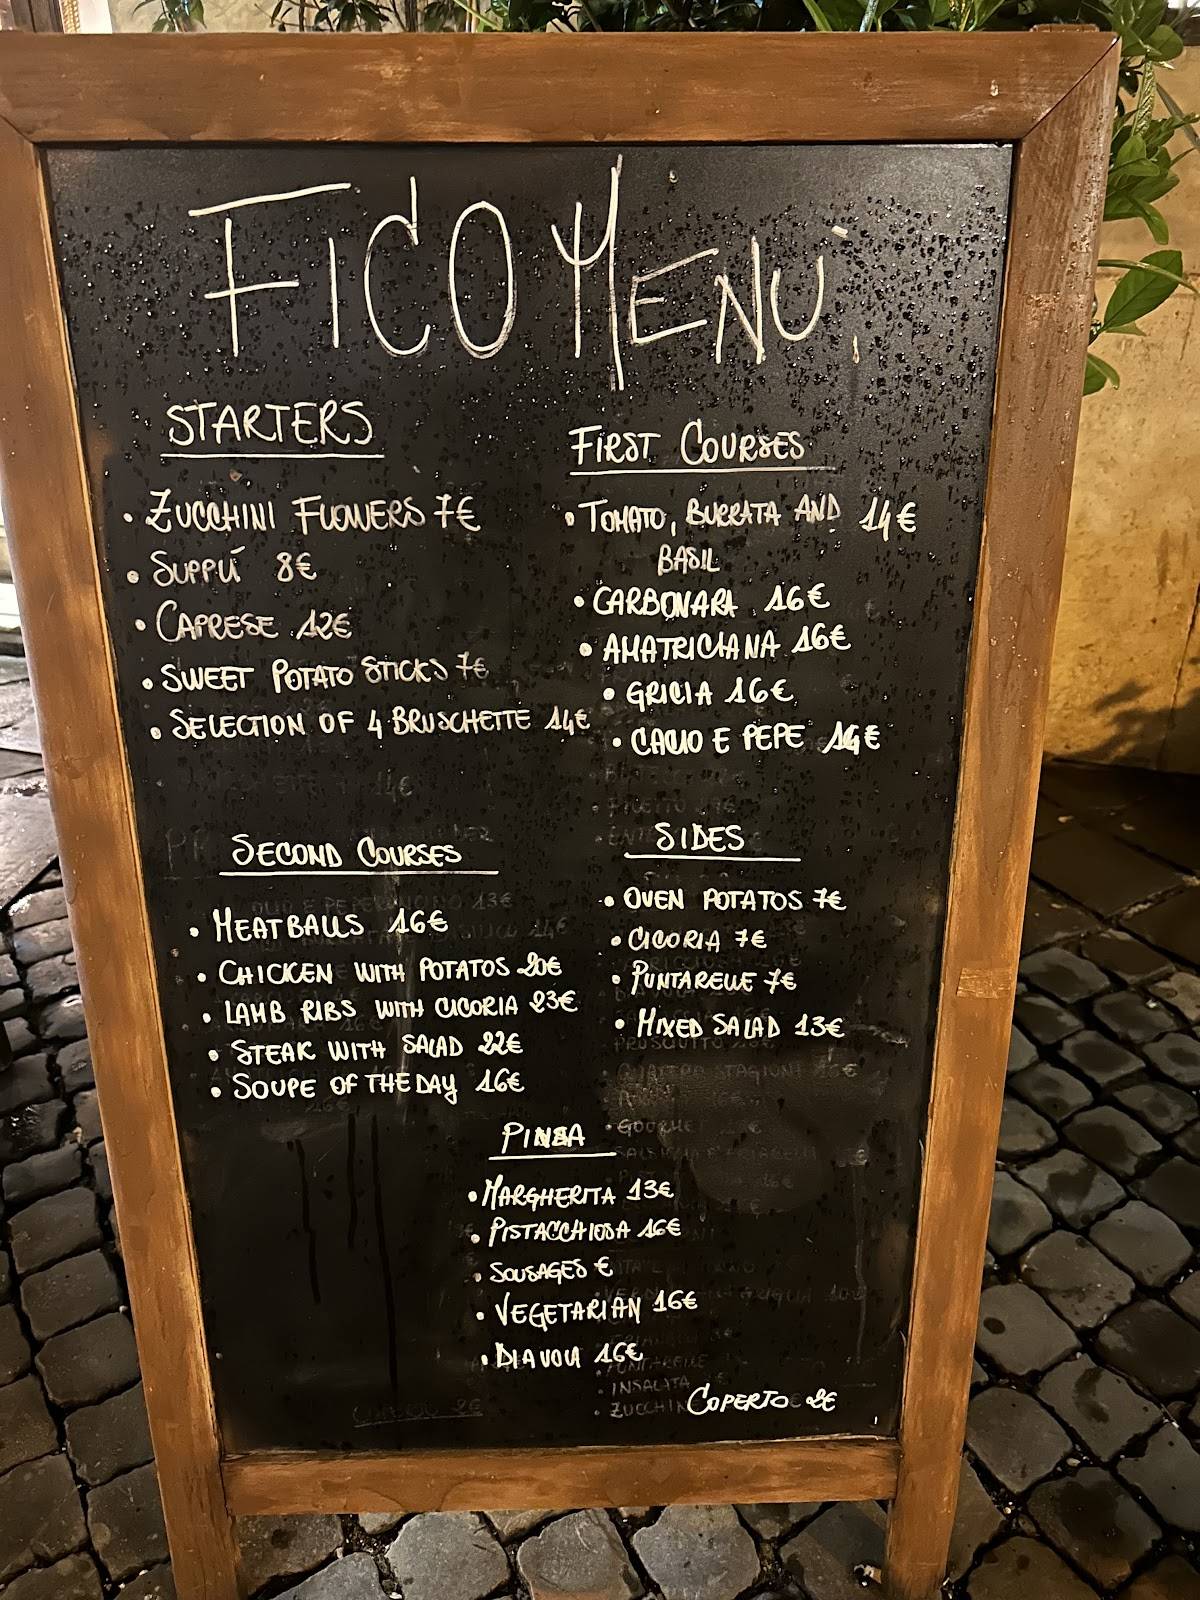 FICO MENÙ
STARTERS
• ZUCCHINI FLOWERS 7€
• SUPPLÍ 8€
• CAPRESE 12€
• SWEET POTATO STICKS 7€
• SELECTION OF 4 BRUSCHETTE 14€
FIRST COURSES
• TOMATO, BURRATA AND 14€
BASIL
• CARBONARA 16€
• AMATRICIANA 16€
• GRICIA 16€
• CACIO E PEPE 14€
SECOND COURSES
• MEATBALLS 16€
• CHICKEN WITH POTATOS 20€
• LAMB RIBS WITH CICORIA 23€
• STEAK WITH SALAD 22€
• SOUPE OF THE DAY 16€
SIDES
• OVEN POTATOS 7€
• CICORIA 7€
• PUNTARELLE 7€
• MIXED SALAD 13€
PINSA
• MARGHERITA 13€
• PISTACCHIOSA 16€
• SOUSAGES €
• VEGETARIAN 16€
• DIAVOLA 16€
• INSALATA
COPERTO 2€